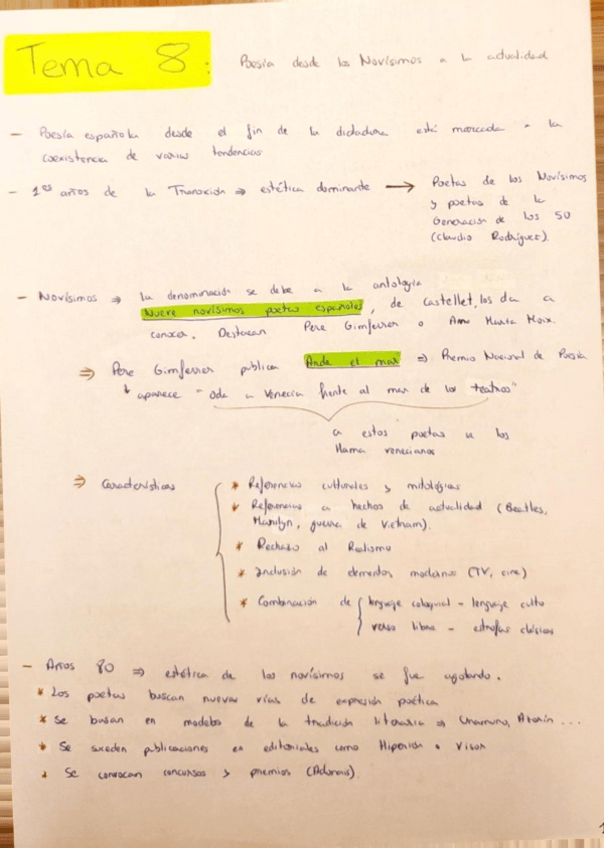 Tema 8: Poesía desde los Novísimos a la actualidad
- Poesía española desde el fin de la dictadura está marcada x la
coexistencia de varias tendencias
- 1os años de la Transición ⇒ estética dominante → Poetas de los Novísimos
y poetas de la
Generación de los 50
(Claudio Rodríguez).
- Novísimos ⇒ la denominación se debe a la antología
Nueve novísimos poetas españoles, de Castellet, los da a
conocer. Destacan Pere Gimferrer o Ana María Moix.
⇒ Pere Gimferrer publica Arde el mar ⇒ Premio Nacional de Poesía
↓ aparece "oda a Venecia frente al mar de los teatros"
a estos poetas se les
llama venecianos
⇒ Características
* Referencias culturales y mitológicas
* Referencias a hechos de actualidad (Beatles,
Marilyn, guerra de Vietnam).
* Rechazo al Realismo
* Inclusión de elementos modernos (TV, cine)
* Combinación de lenguaje coloquial - lenguaje culto
verso libre - estrofas clásicas
- Años 80 ⇒ estética de los novísimos se fue agotando.
* Los poetas buscan nuevas vías de expresión poética
* Se basan en modelos de la tradición literaria Unamuno, Azorín ...
* Se suceden publicaciones en editoriales como Hiperión o Visor
* Se convocan concursos y premios (Adonais)